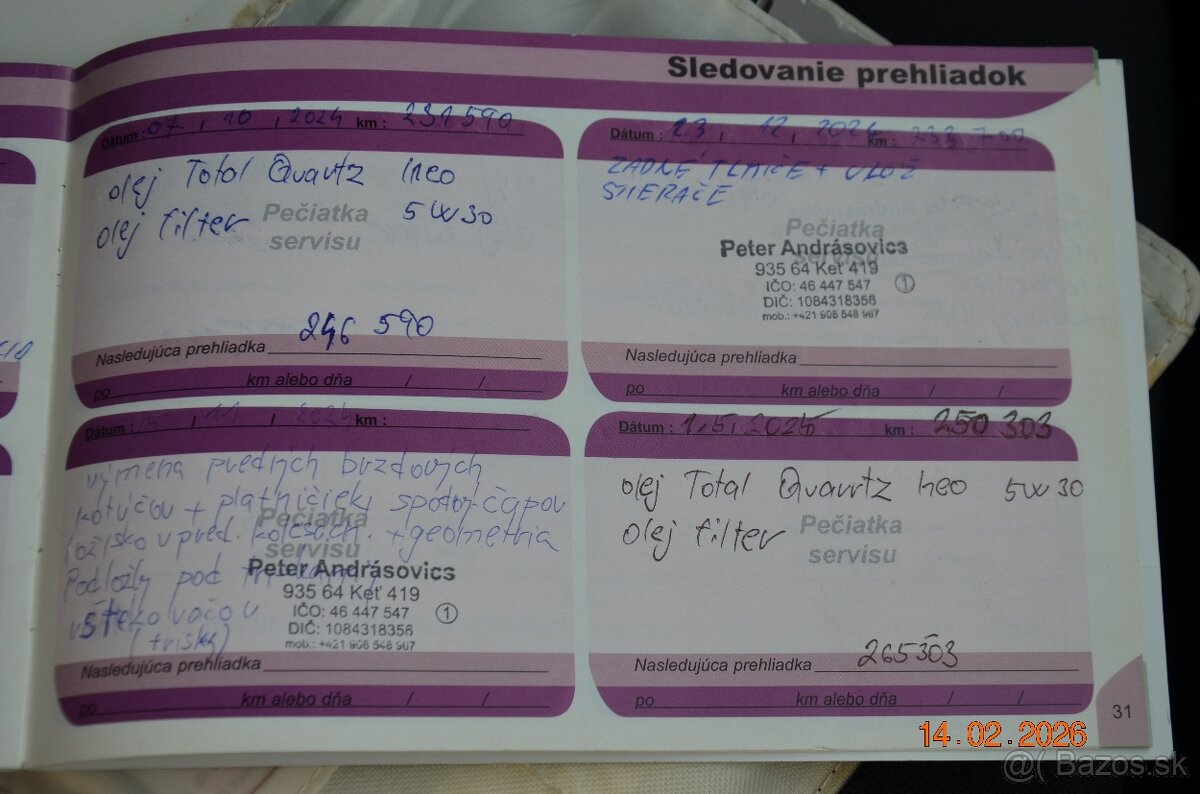 Sledovanie prehliadok
Dátum : 07. 10 2024 km : 231 590
olej Total Quartz Ineo
olej filter 5W30
Pečiatka
servisu
246 590
Nasledujúca prehliadka
po km alebo dňa / /
Dátum : 23 12 2024 km :
ZADNÉ TLMIČE +
STIERAČE
Pečiatka
servisu
Peter Andrásovics
935 64 Keť 419
IČO: 46 447 547 1
DIČ: 1084318356
mob.: +421 908 548 967
Nasledujúca prehliadka
po km alebo dňa / /
Dátum : 11 2024 km :
výmena predných brzdových
kotúčov + platničiek, spod. čapov
ložisko v pred. kolesách. + geometria
Podložky pod
vstrekovačov
Pečiatka
servisu
Peter Andrásovics
935 64 Keť 419
IČO: 46 447 547 1
DIČ: 1084318356
mob.: +421 908 548 967
Nasledujúca prehliadka
po km alebo dňa / /
Dátum : 1.5. 2025 km : 250 303
olej Total Quartz Ineo 5W30
olej filter
Pečiatka
servisu
Nasledujúca prehliadka 265303
po km alebo dňa / /
31
14.02.2026
@( Bazos.sk